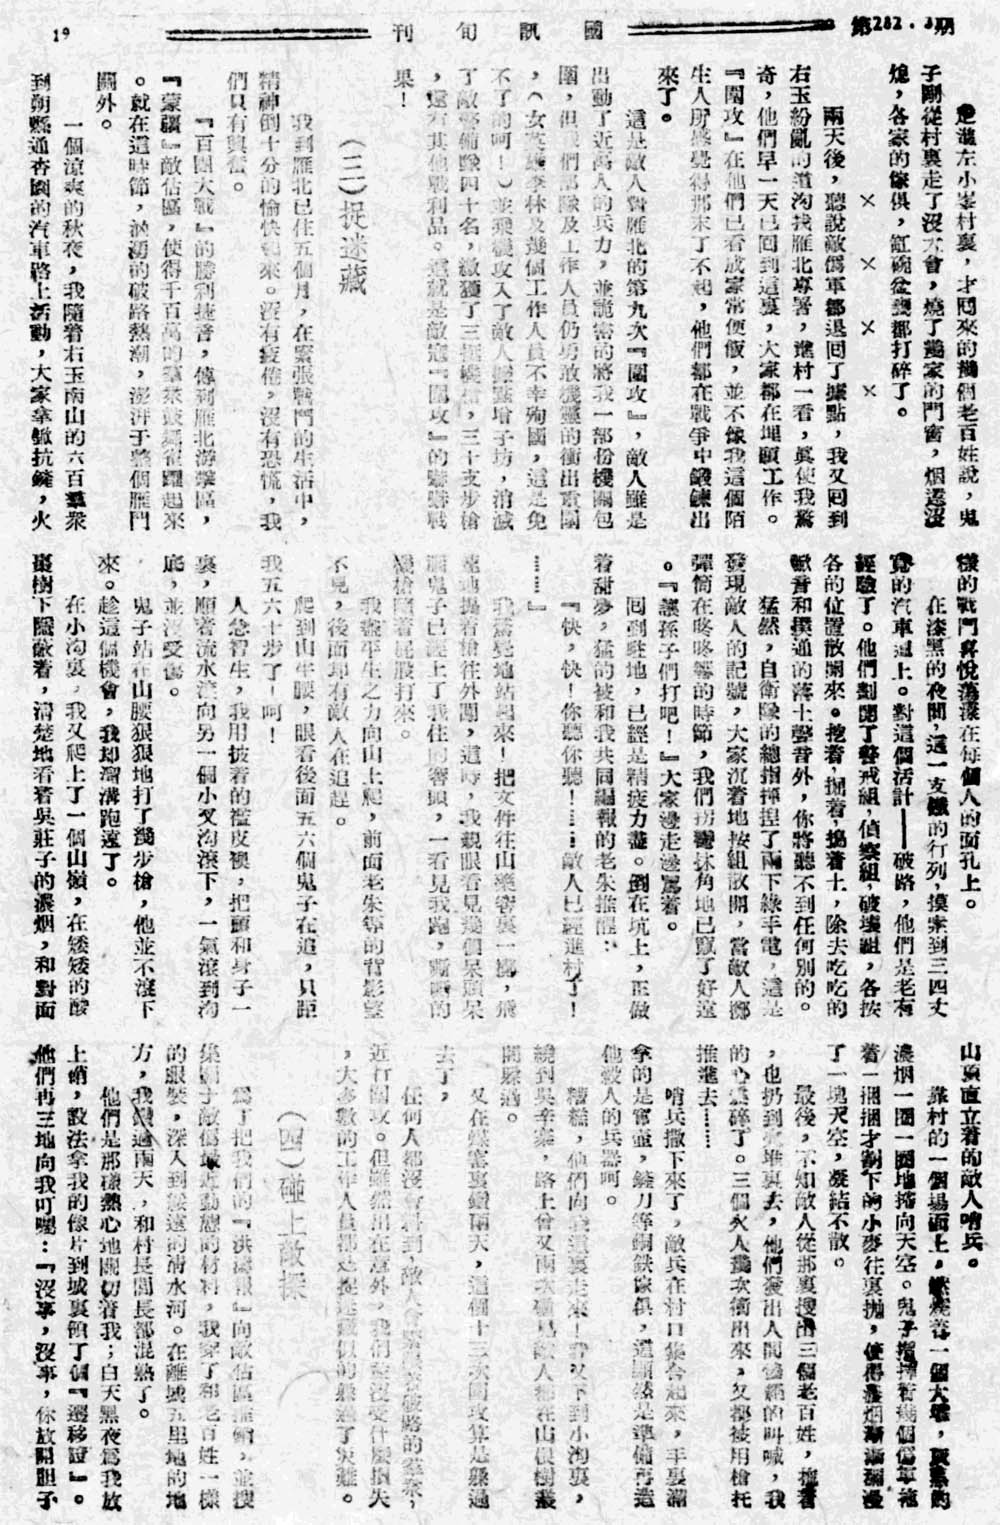 19
國訊旬刊
第282.3期
是灘左小峯村裏，才囘來的幾個老百姓說，鬼
子剛從村裏走了沒大會，燒了幾家的門窗，烟還沒
熄，各家的傢俱，缸碗盆甕都打碎了。
× × × ×
兩天後，聽說敵僞軍都退囘了據點，我又囘到
右玉紛亂的道沟我雁北專署，進村一看，眞使我驚
奇，他們早一天已囘到這裏，大家都在埋頭工作。
『圍攻』在他們已看成家常便飯，並不像我這個陌
生人所感覺得那末了不起，他們都在戰爭中鍛鍊出
來了。
這是敵人對雁北的第九次『圍攻』，敵人雖是
出動了近萬人的兵力，並詭密的將我一部份機關包
圍，但我們部隊及工作人員仍勇敢機靈的衝出重圍
，（女英雄李林及幾個工作人員不幸殉國，這是免
不了的呵！）並乘機攻入了敵人據點增子坊，消滅
了敵警備隊四十名，繳獲了三挺機槍，三十支步槍
，還有其他戰利品。這就是敵寇『圍攻』的賺賠戰
果！
（三）捉迷藏
我到雁北已住五個月，在緊張戰鬥的生活中，
精神倒十分的愉快起來。沒有疲倦，沒有恐慌，我
們只有興奮。
『百團大戰』的勝利捷音，傳到雁北游擊區，
『蒙疆』敵佔區，使得千百萬的羣衆鼓舞雀躍起來
。就在這時節，洶湧的破路熱潮，澎湃于整個雁門
關外。
一個涼爽的秋夜，我隨着右玉南山的六百羣衆
到朔縣通杏園的汽車路上活動，大家拿鍬抗鐃，火
樣的戰鬥喜悅蕩漾在每個人的面孔上。
在漆黑的夜間，這一支鐵的行列，摸索到三四丈
寬的汽車道上。對這個活計——破路，他們是老有
經驗了。他們劃開了警戒組，偵察組，破壞組，各按
各的位置散開來。挖着，掘着，搗着土，除去吃吃的
鍬音和撲通的落土聲音外，你將聽不到任何別的。
猛然，自衛隊的總指揮捏了兩下綠手電，這是
發現敵人的記號，大家沉着地按組散開，當敵人擲
彈筒在咚咚響的時節，我們拐彎抹角地已竄了好遠
。『讓孫子們打吧！』大家邊走邊罵着。
囘到駐地，已經是精疲力盡。倒在坑上，正做
着甜夢，猛的被和我共同編報的老朱推醒：
『快，快！你聽你聽！……敵人已經進村了！
……』
我驚覺地站起來！把文件往山藥窖裏一塞，飛
速地提着槍往外闖，這時，我親眼看見幾個呆頭呆
腦鬼子已經上了我住的窰頭，一看見我跑，嘶嘶的
機槍隨着屁股打來。
我盡平生之力向山上爬，前面老朱等的背影望
不見，後面却有敵人在追趕。
爬到山半腰，眼看後面五六個鬼子在追，只距
我五六十步了！呵！
人急智生，我用披着的褴皮襖，把頭和身子一
裹，順着流水溝向另一個小叉沟滾下，一氣滾到沟
底，並沒受傷。
鬼子站在山腰狠狠地打了幾步槍，他並不滾下
來。趁這個機會，我却溜溝跑遠了。
在小沟裏，我又爬上了一個山嶺，在矮矮的酸
棗樹下隱蔽着，清楚地看着吳莊子的濃烟，和對面
山頂直立着的敵人哨兵。
靠村的一個場面上，燃燒着一個大堆，灰黑的
濃烟一圈一圈地捲向天空。鬼子指揮着幾個僞軍拖
着一捆捆才割下的小麥往裏抛，使得濃烟漸漸瀰漫
了一塊天空，凝結不散。
最後，不知敵人從那裏搜出三個老百姓，拖着
，也扔到火堆裏去，他們發出人間慘絕的叫喊，我
的心震碎了。三個火人幾次衝出來，又都被用槍托
推進去……
哨兵撤下來了，敵兵在村口集合起來，手裏滿
拿的是酒壺，鍘刀等銅鉄傢俱，這顯然是準備再造
他殺人的兵器呵。
糟糕，他們向我這裏走來！我又下到小沟裏，
繞到吳辛寨，路上曾又兩次碰見敵人都在山根樹叢
間躲過。
又在煤窰裏鑽兩天，這個十三次圍攻算是躲過
去了，
任何人都沒會料到，敵人會緊跟着破路的羣衆，
近行圍攻。但雖然出在意外，我們並沒受什麼損失
，大多數的工作人員都是捉迷藏似的躲過了災難。
（四）碰上敵探
爲了把我們的『洪濤報』向敵佔區推銷，並搜
集關于敵僞最近動態的材料，我穿了和老百姓一樣
的服裝，深入到綏遠的清水河。在離城五里地的地
方，我住過兩天，和村長閭長都混熟了。
他們是那樣熱心地關切着我；白天黑夜爲我放
上哨，設法拿我的像片到城裏領了個『遷移證』。
他們再三地向我叮嚀：『沒事，沒事，你放開胆子